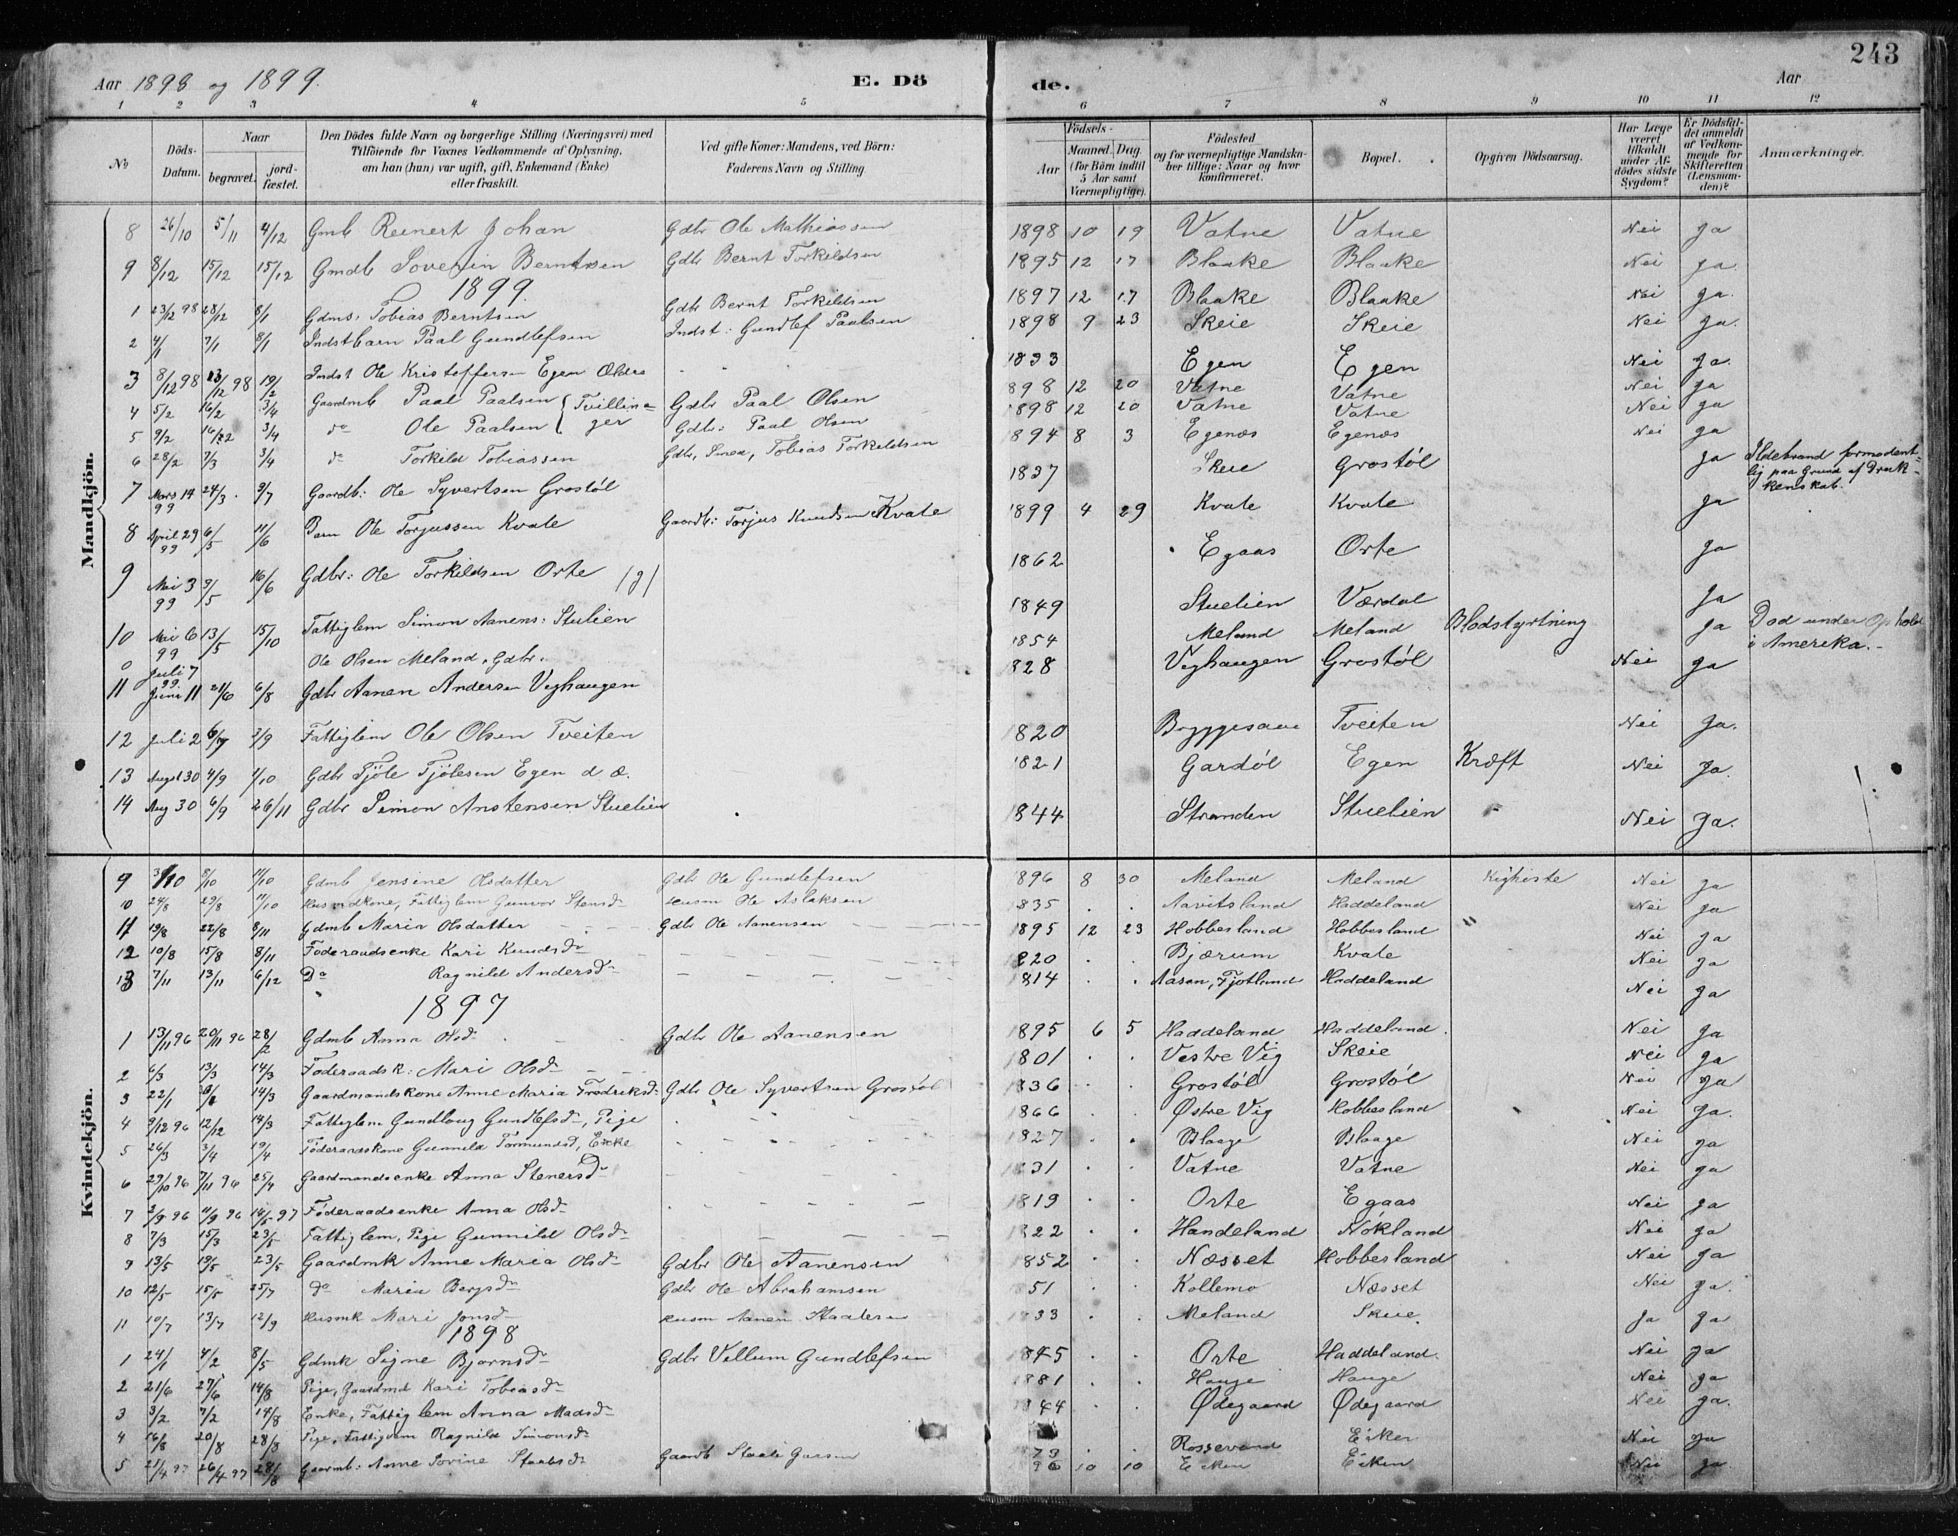 243
Aar 1898 og 1899.
E. Dö de.
Aar
1 2 3 4 5 6 7 8 9 10 11 12
No
Döds-Datum.
Naar begravet. jordfæstet.
Den Dödes fulde Navn og borgerlige Stilling (Næringsvei) med Tilföiende for Voxnes Vedkommende af Oplysning, om han (hun) var ugift, gift, Enkemand (Enke) eller fraskilt.
Ved gifte Koner: Mandens, ved Börn: Faderens Navn og Stilling
Födsels-Aar Maaned. Dag. (for Börn indtil 5 Aar samt Værnepligtige).
Födested og for værnepligtige Mandskaber tillige: Naar og hvor konfirmeret.
Bopæl.
Opgiven Dödsaarsag.
Har Læge været tilkaldt under Afdödes sidste Sygdom?
Er Dödsfaldet anmeldt af Vedkommende for Skifteretten (Lensmanden)?
Anmærkninger.
Mandkjön.
8 26/10 5/11 4/12 Gmb Reinert Johan Gdbr Ole Mathiassen 1898 10 19 Vatne Vatne Nei Ja
9 8/12 15/12 15/12 Gmdb Soverin Berntsen Gdbr Bernt Torkildsen 1895 12 17 Blaake Blaake Nei Ja.
1899.
1 23/12 98 28/12 8/1 Gdms. Tobias Berntsen Gdbr Bernt Torkildsen 1897 12 17 Blaake Blaake Nei Ja.
2 4/1 7/1 8/1 Indstbarn Paal Gundlefsen Indst: Gundlef Paalsen 1898 9 23 Skeie Skeie Nei Ja.
3 8/12 98 13/12 98 19/2 Indst Ole Kristoffersen Egen Ældre 1833 Egen Egen Nei Ja.
4 5/2 16/2 3/4 Gaardmb Paal Paalsen { Tvillin= Gdbr Paal Olsen 898 12 20 Vatne Vatne Nei Ja
5 9/2 16/22 3/4 do Ole Paalsen { ger Gdbr: Paal Olsen 1898 12 20 Vatne Vatne Nei Ja
6 28/2 7/3 3/4 do Torkild Tobiassen Gdbr, Tobias Torkildsen 1894 8 3 Egenæs Egenæs Nei Ja
7 Mars 14 99 24/3 9/7 Gaardb: Ole Syvertsen Grostøl 1837 Skeie Grostøl Ja Ildebrand formodent-lig paa Grund af Druk-kenskab.
8 April 29 99 6/5 11/6 Barn Ole Torjussen Kvale Gaardb: Torjus Knudsen Kvate 1899 4 29 Kvate Kvate Ja
9 Mai 3 99 9/5 16/6 Gdbr: Ole Torkildsen Orte /g/ 1862 Egaas Orte Ja
10 Mai 6 99 13/5 15/10 Fattiglem Simon Aanens: Stulien 1849 Stuelien Værdal Ja
0 Juli 7 99. Ole Olsen Meland, Gdbr. 1854 Meland Meland Blodstyrtning Ja Død under Ophold i Amerika.
11 Juni 11 21/6 6/8 Gdbr Aanen Andersen Veghaugen 828 Veghaugen Grostøl Nei Ja
12 Juli 2 6/7 3/9 Fattiglem Ole Olsen Tveiten 1820 Bryggesaae Tveiten Nei Ja.
13 Augst 30 4/9 1/10 Gdbr Tjöle Tjölesen Egen d. æ. 1821 Gardöl Egen Kræft Nei Ja.
14 Aug 30 6/9 26/11 Gdbr Simon Anstensen Stuelien 1844 Stranden Stuelien Nei Ja.
Kvindekjön.
9 3/10 8/10 11/10 Gdmb Jensine Olsdatter Gdbr Ole Gundlefsen 1896 8 30 Meland Meland Kighoste Nei Ja
10 24/8 29/8 11/10 Husmdkone, Fattiglem Gunvor Stensd Husm Ole Aslaksen 835 Aavitsland Haddeland Nei Ja
11 19/8 22/8 8/11 Gdmb Maria Olsdatter Gdbr Ole Aanensen 1895 12 23 Hobbesland Hobbesland Nei Ja
12 10/8 15/8 8/11 Føderaadsenke Kari Knudsd 820 Bjærum Kvale Nei Ja
13 7/11 13/11 6/12 Do Ragnild Andersd 814 Aasen, Fjotland Haddeland Nei Ja
1897
1 13/11 96 20/11 96 28/2 Gdmb Anna Olsd Gdbr Ole Aanensen 1895 6 5 Haddeland Haddeland. Nei Ja
2 6/3 13/3 14/3 Føderaadsk: Mari Olsd 1801 Vestre Vig Skeie Nei Ja
3 22/1 14/3 Gaardmandskone Anne Maria Fredriksd. Gdbr Ole Syvertsen Grostøl 1836 Grostøl Grostøl Nei Ja
4 9/12 96 12/12 14/3 Fattiglem Gundloug Gundlefsd, Pige 1866 Østre Vig Hobbesland Nei Ja.
5 26/3 3/4 19/4 Føderaadskone Gunnild Tormundsd, Enke 1827 Blaage Blaage Nei Ja
6 29/10 96 7/11 96 25/4 Gaardmandsenke Anna Stenersd 831 Vatne Vatne Nei Ja
7 3/9 96 11/9 96 14/5 97 Føderaadsenke Anna Olsd 1819 Orte Egaas Nei Ja
8 7/3 15/3 23/5 Fattiglem, Pige Gunnild Olsd 1822 Handeland Nökland Nei Ja
9 13/5 19/5 23/5 Gaardmk Anne Maria Olsd Gdbr Ole Aanensen 1852 Næsset Hobbesland Nei Ja
10 12/5 15/5 25/7 do Maria Bergsd Gdbr Ole Abrahamsen 51 Kollemo Næsset Nei Ja.
11 10/7 13/7 12/9 Husmk Mari Jonsd Husm Aanen Staalesn 33 Meland Skeie. Ja Ja
1898
1 24/1 4/2 8/5 Gdmk Signe Bjornsd Gdbr Vellum Gundlefsen 1845 Orte Haddeland. Nei Ja
2 21/6 27/6 14/8 Pige, Gaardmd Kari Tobiasd 1881 Hauge Hauge Nei Ja
3 3/2 7/2 14/8 Enke, Fattiglem Anna Madsd 1844 Ødegaard Ødegaard Nei Ja.
4 16/8 20/8 28/8 Pige, Fattiglem Ragnild Simonsd Rossevand Eiken Nei Ja
5 21/4 97 26/4 97 28/8 Gaarmb: Anne Sovine Staalesd Gaardb Staale 96 10 10 Eiken Eiken Nei Ja.